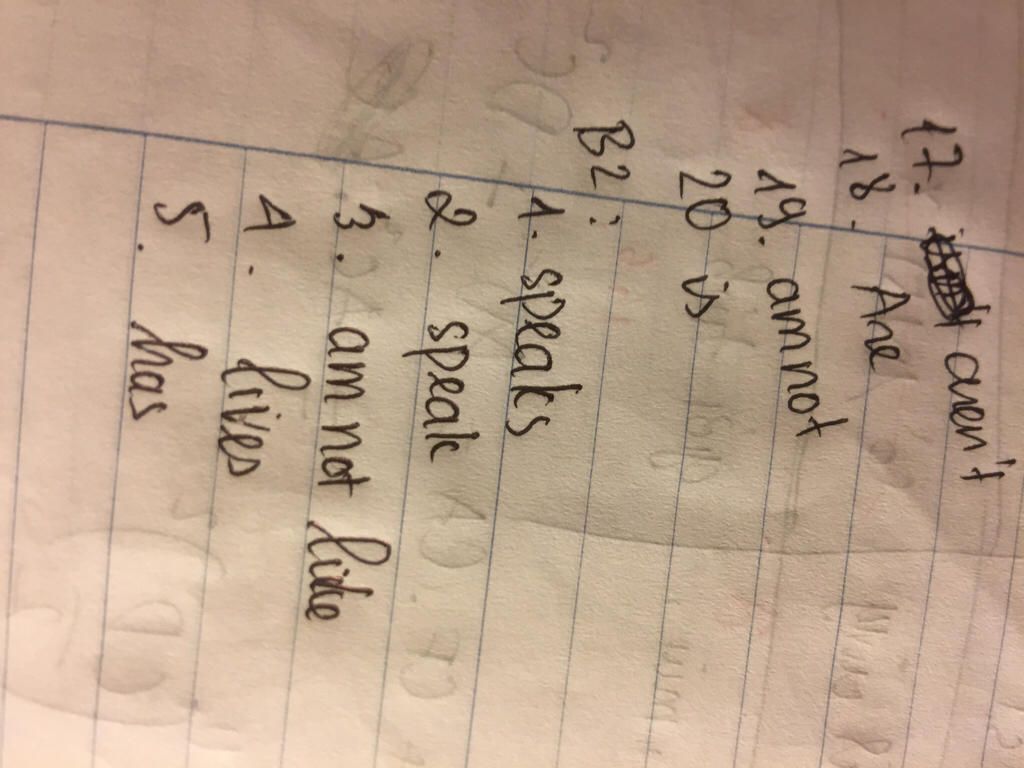 17. aren't
18. Are
19. am not
20 is
B2:
1. speaks
2. speak
3. am not like
4. lives
5. has